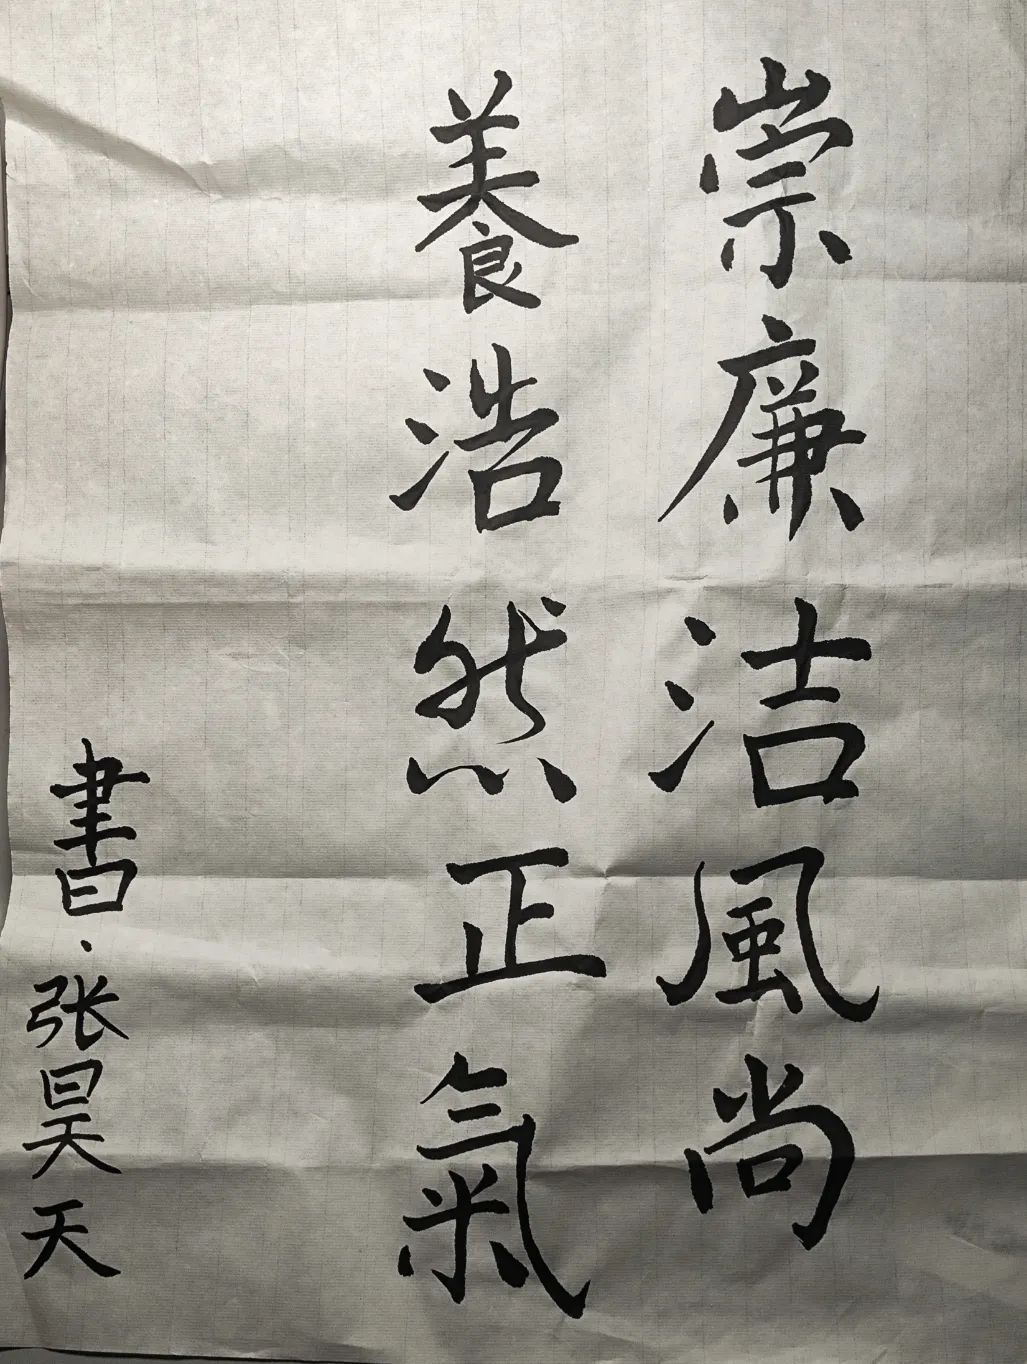 崇廉洁風尚
養浩然正氣
書·张昊天